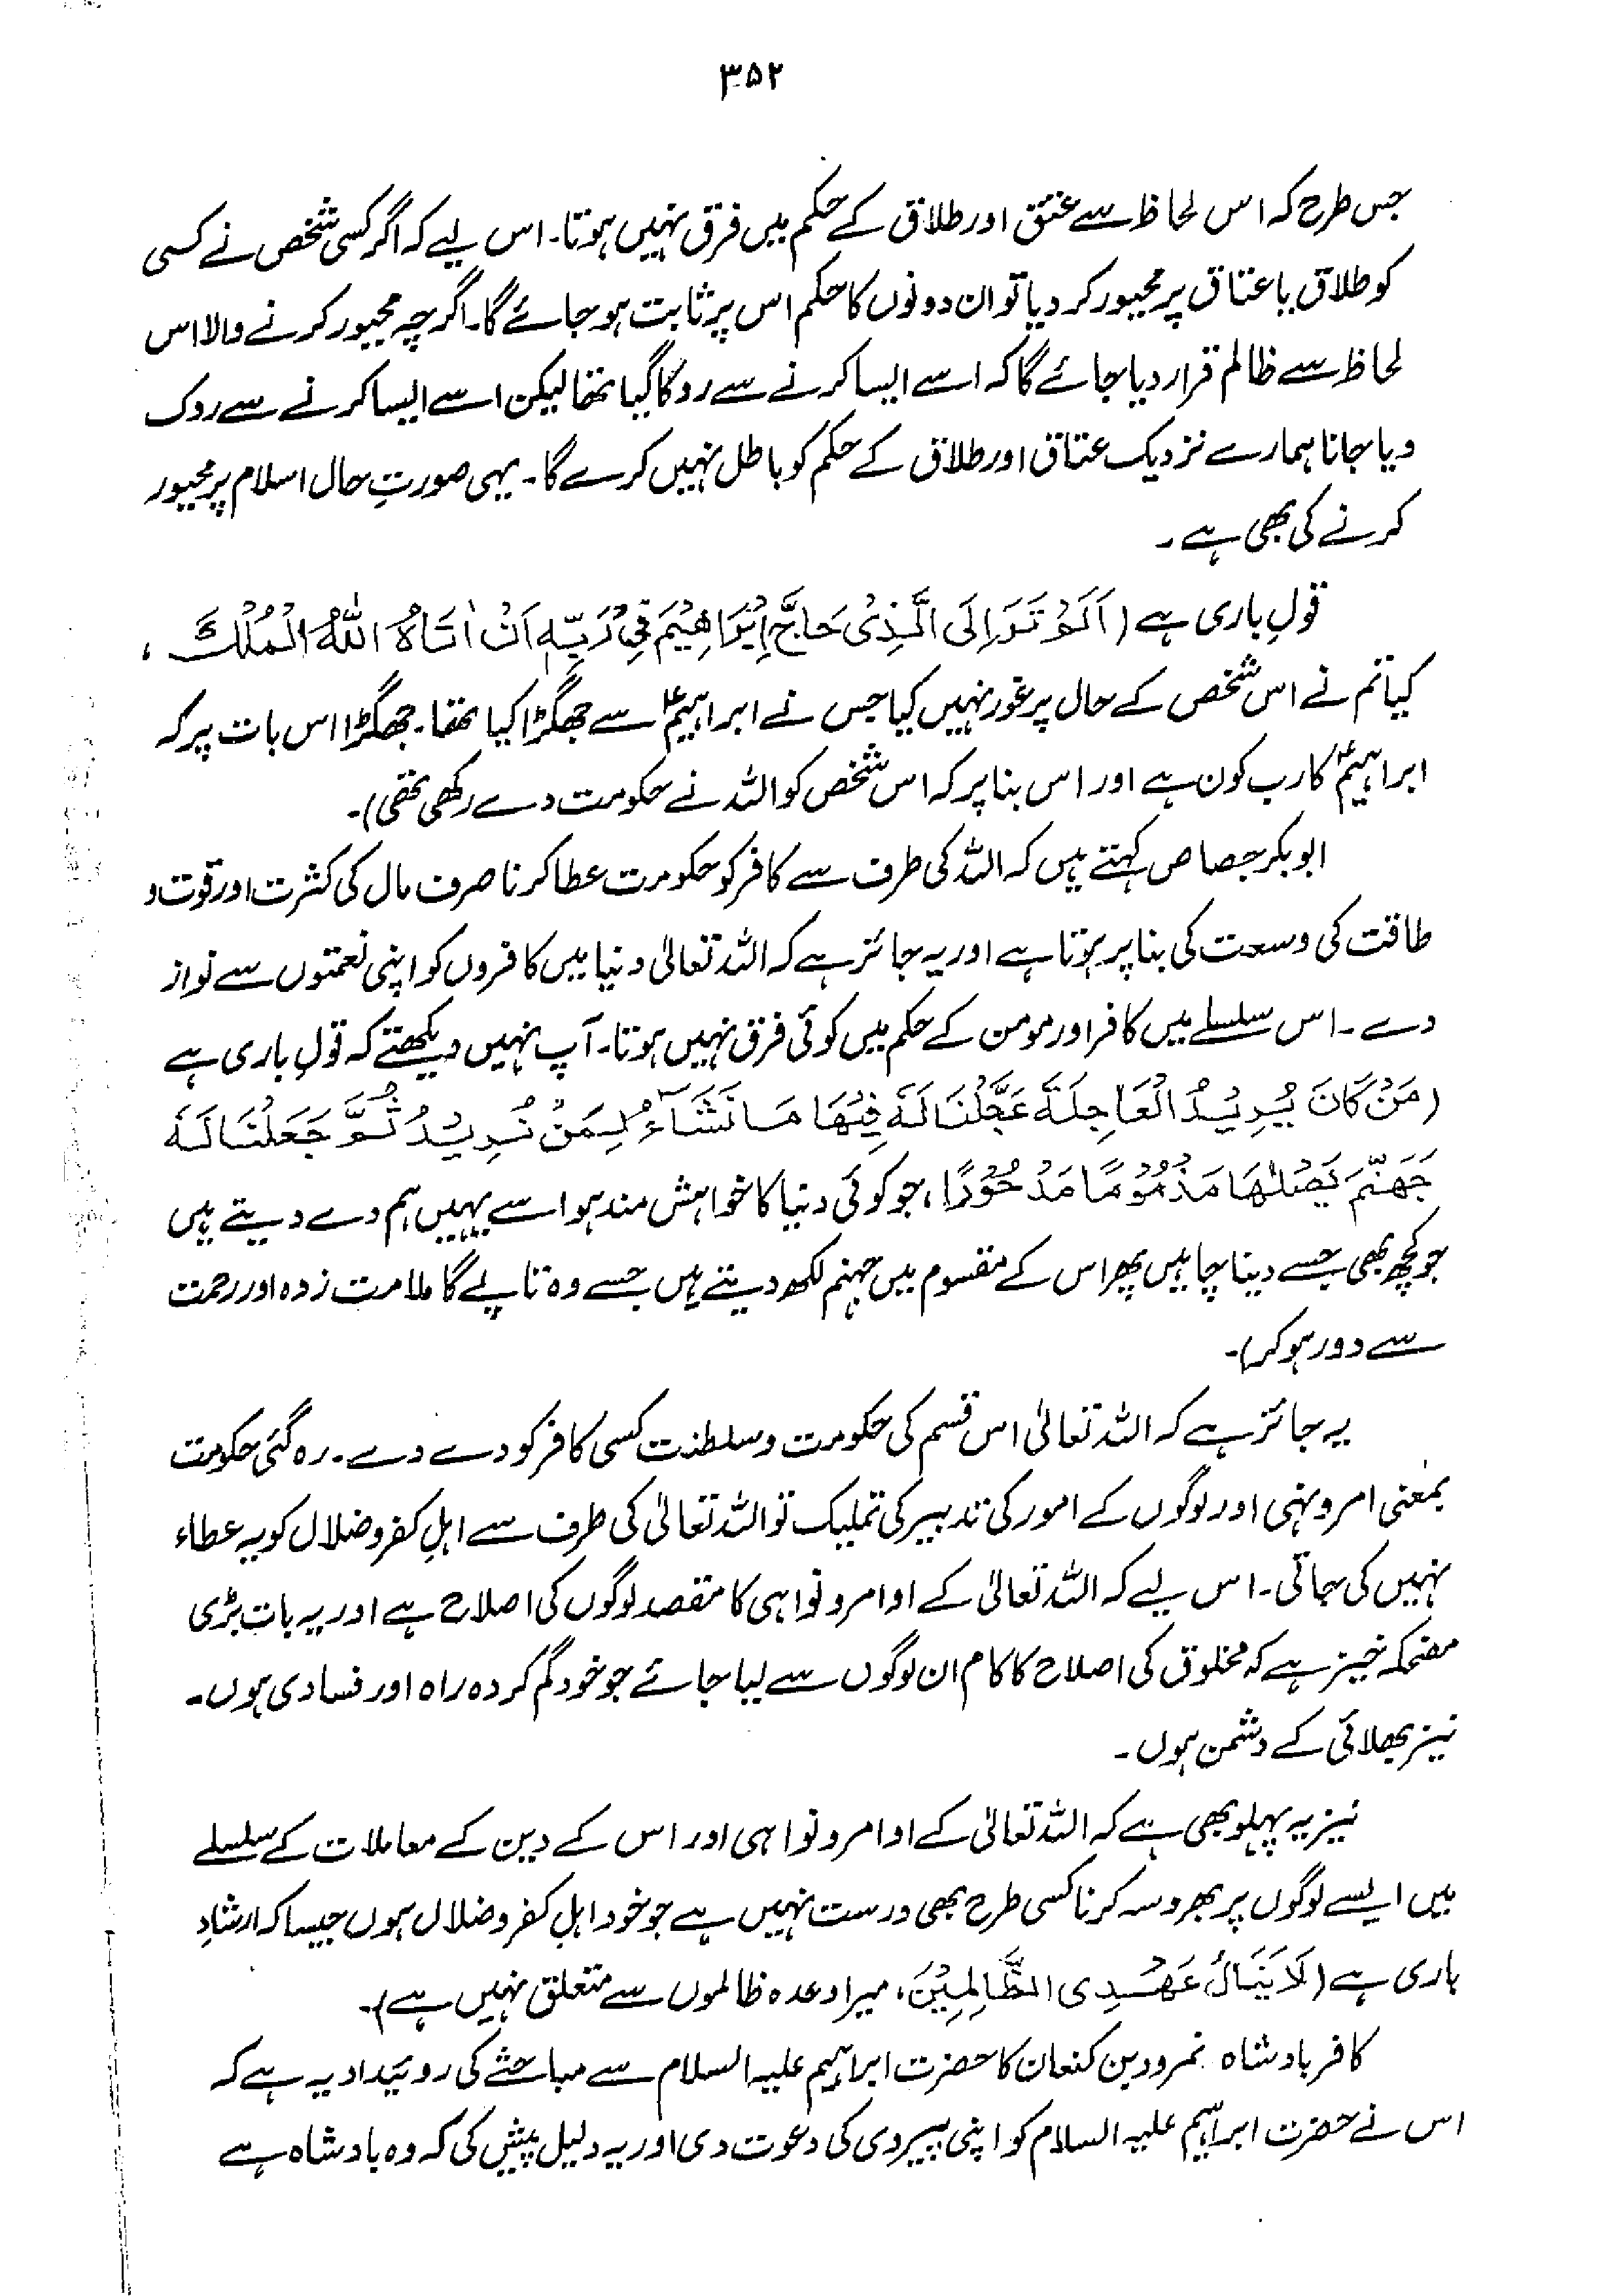 ۳۵۲
جس طرح کہ اس لحاظ سے عتق اور طلاق کے حکم میں فرق نہیں ہوتا۔ اس لیے کہ اگر کسی شخص نے کسی
کو طلاق یا عتاق پر مجبور کر دیا تو ان دونوں کا حکم اس پر ثابت ہو جائے گا۔ اگرچہ مجبور کرنے والا اس
لحاظ سے ظالم قرار دیا جائے گا کہ اسے ایسا کرنے سے روکا گیا تھا لیکن اسے ایسا کرنے سے روک
دیا جانا ہمارے نزدیک عتاق اور طلاق کے حکم کو باطل نہیں کرے گا۔ یہی صورتِ حال اسلام پر مجبور
کرنے کی بھی ہے۔
قولِ باری ہے (اَلَمْ تَرَ اِلَى الَّذِىْ حَاجَّ اِبْرَاهِيْمَ فِىْ رَبِّهٖ اَنْ اٰتَاهُ اللّٰهُ الْمُلْكَ،
کیا تم نے اس شخص کے حال پر غور نہیں کیا جس نے ابراہیمؑ سے جھگڑا کیا تھا۔ جھگڑا اس بات پر کہ
ابراہیمؑ کا رب کون ہے اور اس بنا پر کہ اس شخص کو اللہ نے حکومت دے رکھی تھی)۔
ابوبکر جصاص کہتے ہیں کہ اللہ کی طرف سے کافر کو حکومت عطا کرنا صرف مال کی کثرت اور قوت و
طاقت کی وسعت کی بنا پر ہوتا ہے اور یہ جائز ہے کہ اللہ تعالیٰ دنیا میں کافروں کو اپنی نعمتوں سے نواز
دے۔ اس سلسلے میں کافر اور مومن کے حکم میں کوئی فرق نہیں ہوتا۔ آپ نہیں دیکھتے کہ قولِ باری ہے
(مَنْ كَانَ يُرِيْدُ الْعَاجِلَةَ عَجَّلْنَا لَهٗ فِيْهَا مَا نَشَآءُ لِمَنْ نُرِيْدُ ثُمَّ جَعَلْنَا لَهٗ
جَهَنَّمَ يَصْلٰهَا مَذْمُوْمًا مَدْحُوْرًا، جو کوئی دنیا کا خواہش مند ہو اسے یہیں ہم دے دیتے ہیں
جو کچھ بھی جسے دینا چاہیں پھر اس کے مقسوم میں جہنم لکھ دیتے ہیں جسے وہ تاپے گا ملامت زدہ اور رحمت
سے دور ہو کر)۔
یہ جائز ہے کہ اللہ تعالیٰ اس قسم کی حکومت و سلطنت کسی کافر کو دے دے۔ رہ گئی حکومت
بمعنی امر و نہی اور لوگوں کے امور کی تدبیر کی تملیک تو اللہ تعالیٰ کی طرف سے اہلِ کفر و ضلال کو یہ عطاء
نہیں کی جاتی۔ اس لیے کہ اللہ تعالیٰ کے اوامر و نواہی کا مقصد لوگوں کی اصلاح ہے اور یہ بات بڑی
مضحکہ خیز ہے کہ مخلوق کی اصلاح کا کام ان لوگوں سے لیا جائے جو خود گم کردہ راہ اور فسادی ہوں۔
نیز بھلائی کے دشمن ہوں۔
نیز یہ پہلو بھی ہے کہ اللہ تعالیٰ کے اوامر و نواہی اور اس کے دین کے معاملات کے سلسلے
میں ایسے لوگوں پر بھروسہ کرنا کسی طرح بھی درست نہیں ہے جو خود اہلِ کفر و ضلال ہوں جیسا کہ ارشادِ
باری ہے (لَا يَنَالُ عَهْدِى الظَّالِمِيْنَ، میرا وعدہ ظالموں سے متعلق نہیں ہے)۔
کافر بادشاہ نمرود بن کنعان کا حضرت ابراہیم علیہ السلام سے مباحثے کی روئیداد یہ ہے کہ
اس نے حضرت ابراہیم علیہ السلام کو اپنی پیروی کی دعوت دی اور یہ دلیل پیش کی کہ وہ بادشاہ ہے